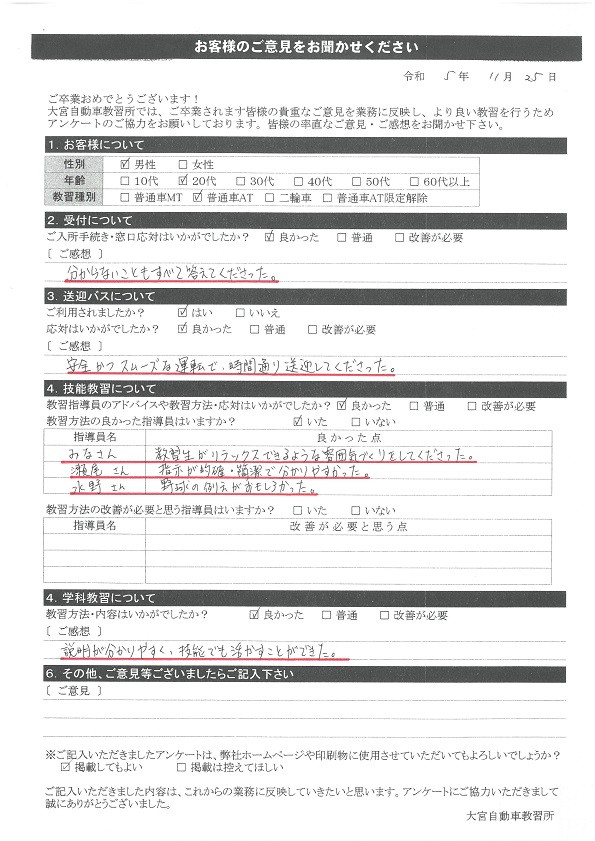 お客様のご意見をお聞かせください
令和 5 年 11 月 25 日
ご卒業おめでとうございます！
大宮自動車教習所では、ご卒業されます皆様の貴重なご意見を業務に反映し、より良い教習を行うため
アンケートのご協力をお願いしております。皆様の率直なご意見・ご感想をお聞かせ下さい。
1. お客様について
性別 ☑ 男性 □ 女性
年齢 □ 10代 ☑ 20代 □ 30代 □ 40代 □ 50代 □ 60代以上
教習種別 □ 普通車MT ☑ 普通車AT □ 二輪車 □ 普通車AT限定解除
2. 受付について
ご入所手続き・窓口応対はいかがでしたか？ ☑ 良かった □ 普通 □ 改善が必要
〔 ご感想 〕
分からないこともすべて答えてくださった。
3. 送迎バスについて
ご利用されましたか？ ☑ はい □ いいえ
応対はいかがでしたか？ ☑ 良かった □ 普通 □ 改善が必要
〔 ご感想 〕
安全かつスムーズな運転で、時間通り送迎してくださった。
4. 技能教習について
教習指導員のアドバイスや教習方法・応対はいかがでしたか？ ☑ 良かった □ 普通 □ 改善が必要
教習方法の良かった指導員はいますか？ ☑ いた □ いない
指導員名 良かった点
みなさん 教習生がリラックスできるような雰囲気づくりをしてくださった。
瀬尾さん 指示が的確・簡潔で分かりやすかった。
水野さん 野球の例えがおもしろかった。
教習方法の改善が必要と思う指導員はいますか？ □ いた □ いない
指導員名 改善が必要と思う点
4. 学科教習について
教習方法・内容はいかがでしたか？ ☑ 良かった □ 普通 □ 改善が必要
〔 ご感想 〕
説明が分かりやすく、技能でも活かすことができた。
6. その他、ご意見等ございましたらご記入下さい
〔 ご意見 〕
※ご記入いただきましたアンケートは、弊社ホームページや印刷物に使用させていただいてもよろしいでしょうか？
☑ 掲載してもよい □ 掲載は控えてほしい
ご記入いただきました内容は、これからの業務に反映していきたいと思います。アンケートにご協力いただきまして
誠にありがとうございました。
大宮自動車教習所